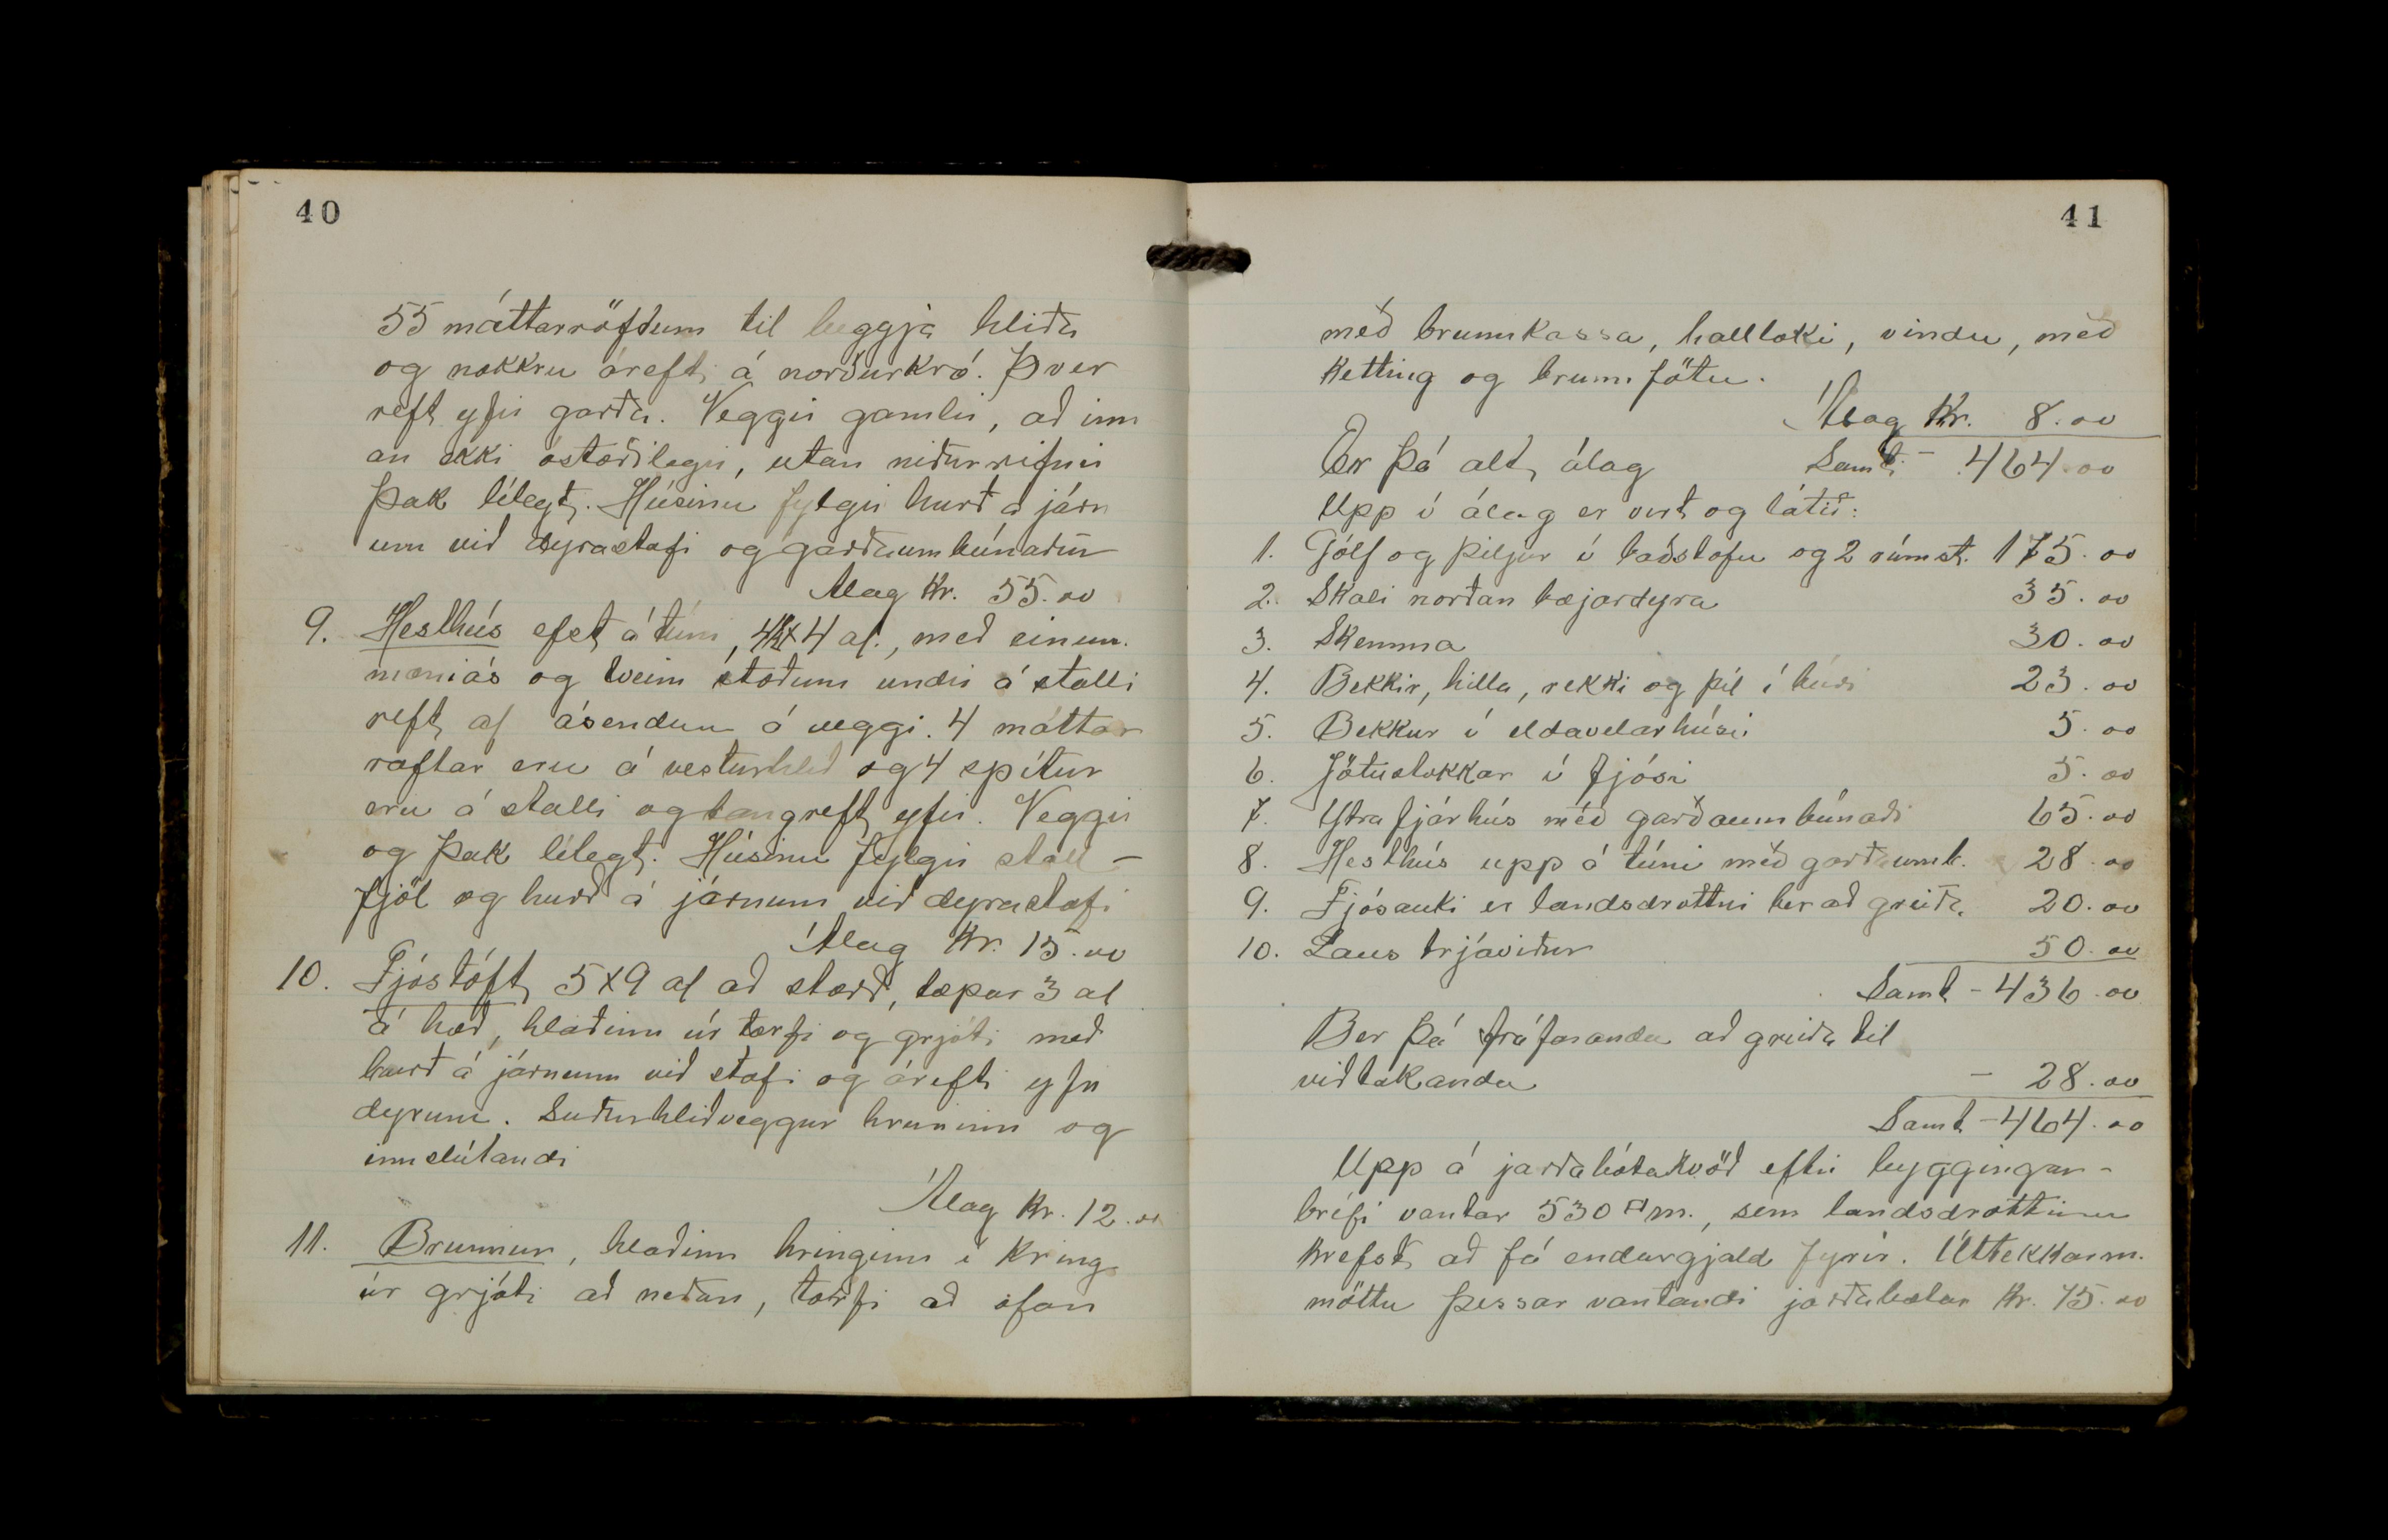 40
55 máttarröftum til beggja hliða
og nokkru árefti á norðurkró. Þver
reft yfir garða. Veggir gamlir, að inn
an ekki óstæðilegir, utan niðurrifnir
Þak lélegt. Húsinu fylgir hurð á járn
um við dyrastafi og garðaumbúnaður
Álag Kr. 55.00
9. Hesthús efst á túni, 4½x4 al., með einum
mæniás og tveim stoðum undir á stalli
reft af ásendum á veggi. 4 máttar
raftar eru á vesturhlið og 4 spítur
eru á stalli og langreft yfir. Veggir
og Þak lélegt. Húsinu fylgir stall-
fjöl og hurð á járnum við dyrastafi
Álag Kr. 15.00
10. Fjóstóft 5x9 al að stærð, tæpar 3 al
á hæð, hlaðinn úr torfi og grjóti með
hurð á járnum við stafi og árefti yfir
dyrum. Suðurhliðveggur hruninn og
innslútandi
Álag Kr. 12.00
11. Brunnur, hlaðinn hringinn í kring
úr grjóti að neðan, torfi að ofan
41
með brunnkassa, halloki, vindu, með
ketting og brunnfötu.
Álag Kr. 8.00
Er Þá alt álag Samt. - 464.00
Upp í álag er virt og látið:
1. Gólf og þiljur í baðstofu og 2 rúmst. 175.00
2. Skáli norðan bæjardyra 35.00
3. Skemma 30.00
4. Bekkir, hilla, rekki og þil í búri 23.00
5. Bekkur í eldavelarhúsi 5.00
6. Jötustokkar í fjósi 5.00
7. Ytra fjárhús með garðaumbúnaði 65.00
8. Hesthús upp á túni með garðaumb. 28.00
9. Fjósauki er landsdrottni ber að greiða 20.00
10. Laus trjáviður 50.00
Samt - 436.00
Ber Þá fráfaranda að greiða til
viðtakanda - 28.00
Samt - 464.00
Upp á jarðabótakvöð eftir byggingar-
bréfi vantar 530 □m., sem landsdrottinn
krefst að fá endurgjald fyrir. Úttekkarm.
möttu þessar vantandi jarðabætur Kr. 75.00